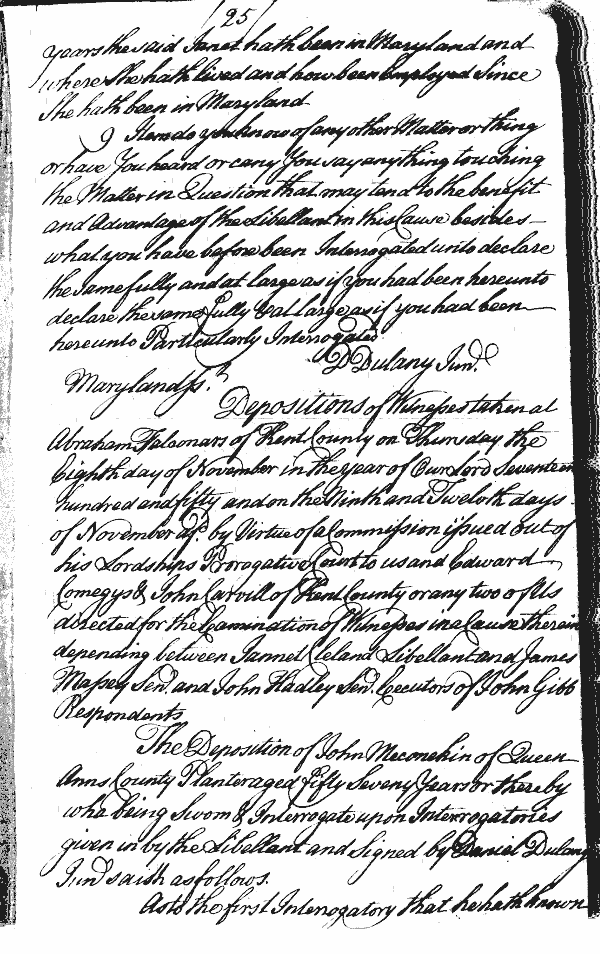 (25)
years the said Janet hath been in Maryland and
where She hath lived and how been Employed Since
She hath been in Maryland
9 Item do you know of any other Matter or thing
or have You heard or can you say any thing touching
the Matter in Question that may tend to the benefit
and Advantage of the Libellant in this Cause besides
what you have before been Interrogated unto declare
the same fully and at large as if you had been hereunto
declare the same fully & at large as if you had been
hereunto Particularly Interrogated
D Dulany Jun.r
Maryland ss.
Depositions of Witnesses taken at
Abraham Falconars of Kent County on Thursday the
Eighth day of November in the year of Our Lord Seventeen
hundred and fifty and on the Ninth and Twelvth days
of November afd. by Virtue of a Commission issued out of
his Lordships Prerogative Court to us and Edward
Comegys & John Carvill of Kent County or any two of Us
directed for the Examination of Witnesses in a Cause therein
depending between Jannet Cleland Libellant and James
Massey Sen.r and John Hadley Sen.r Executors of John Gibb
Respondents
The Deposition of John Meconekin of Queen
Anns County Planter aged fifty Seven Years or thereby
who being Sworn & Interrogate upon Interrogatories
given in by the Libellant and Signed by Daniel Dulany
Jun.r saith as follows.
As to the first Interrogatory that he hath known